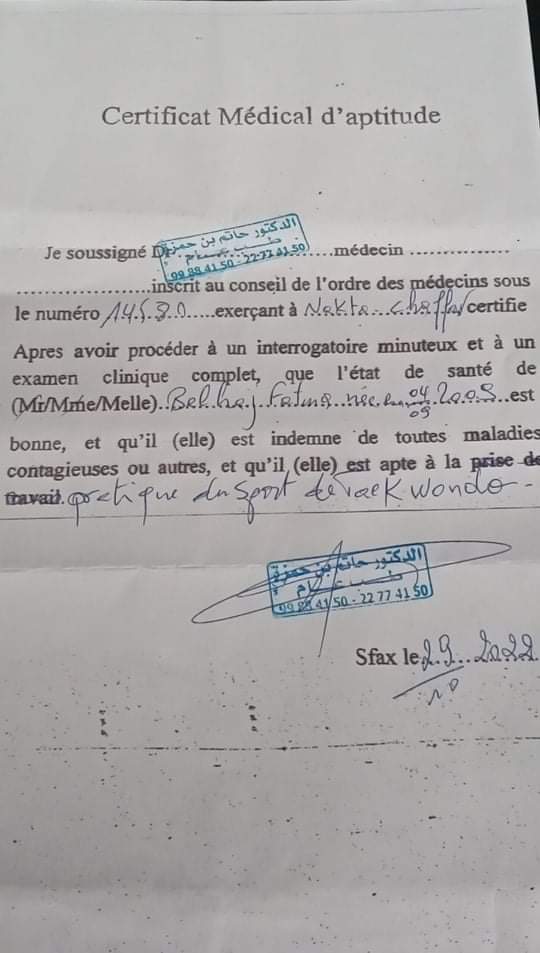 Certificat Médical d'aptitude
Je soussigné Dr.....................médecin ..................
الدكتور حاتم بن حمزة
طب عام
99 88 41 50 - 22 77 41 50
......................inscrit au conseil de l'ordre des médecins sous
le numéro 14.5.80.....exerçant à Nakta...chaffar certifie
Apres avoir procéder à un interrogatoire minuteux et à un
examen clinique complet, que l'état de santé de
(Mr/Mme/Melle)..Belhaj Fatma née en 04/09 2009...est
bonne, et qu'il (elle) est indemne de toutes maladies
contagieuses ou autres, et qu'il (elle) est apte à la prise de
travail. pratique du Sport de Taekwondo -
الدكتور حاتم بن حمزة
طب عام
99 88 41 50 - 22 77 41 50
Sfax le 29...2022
10